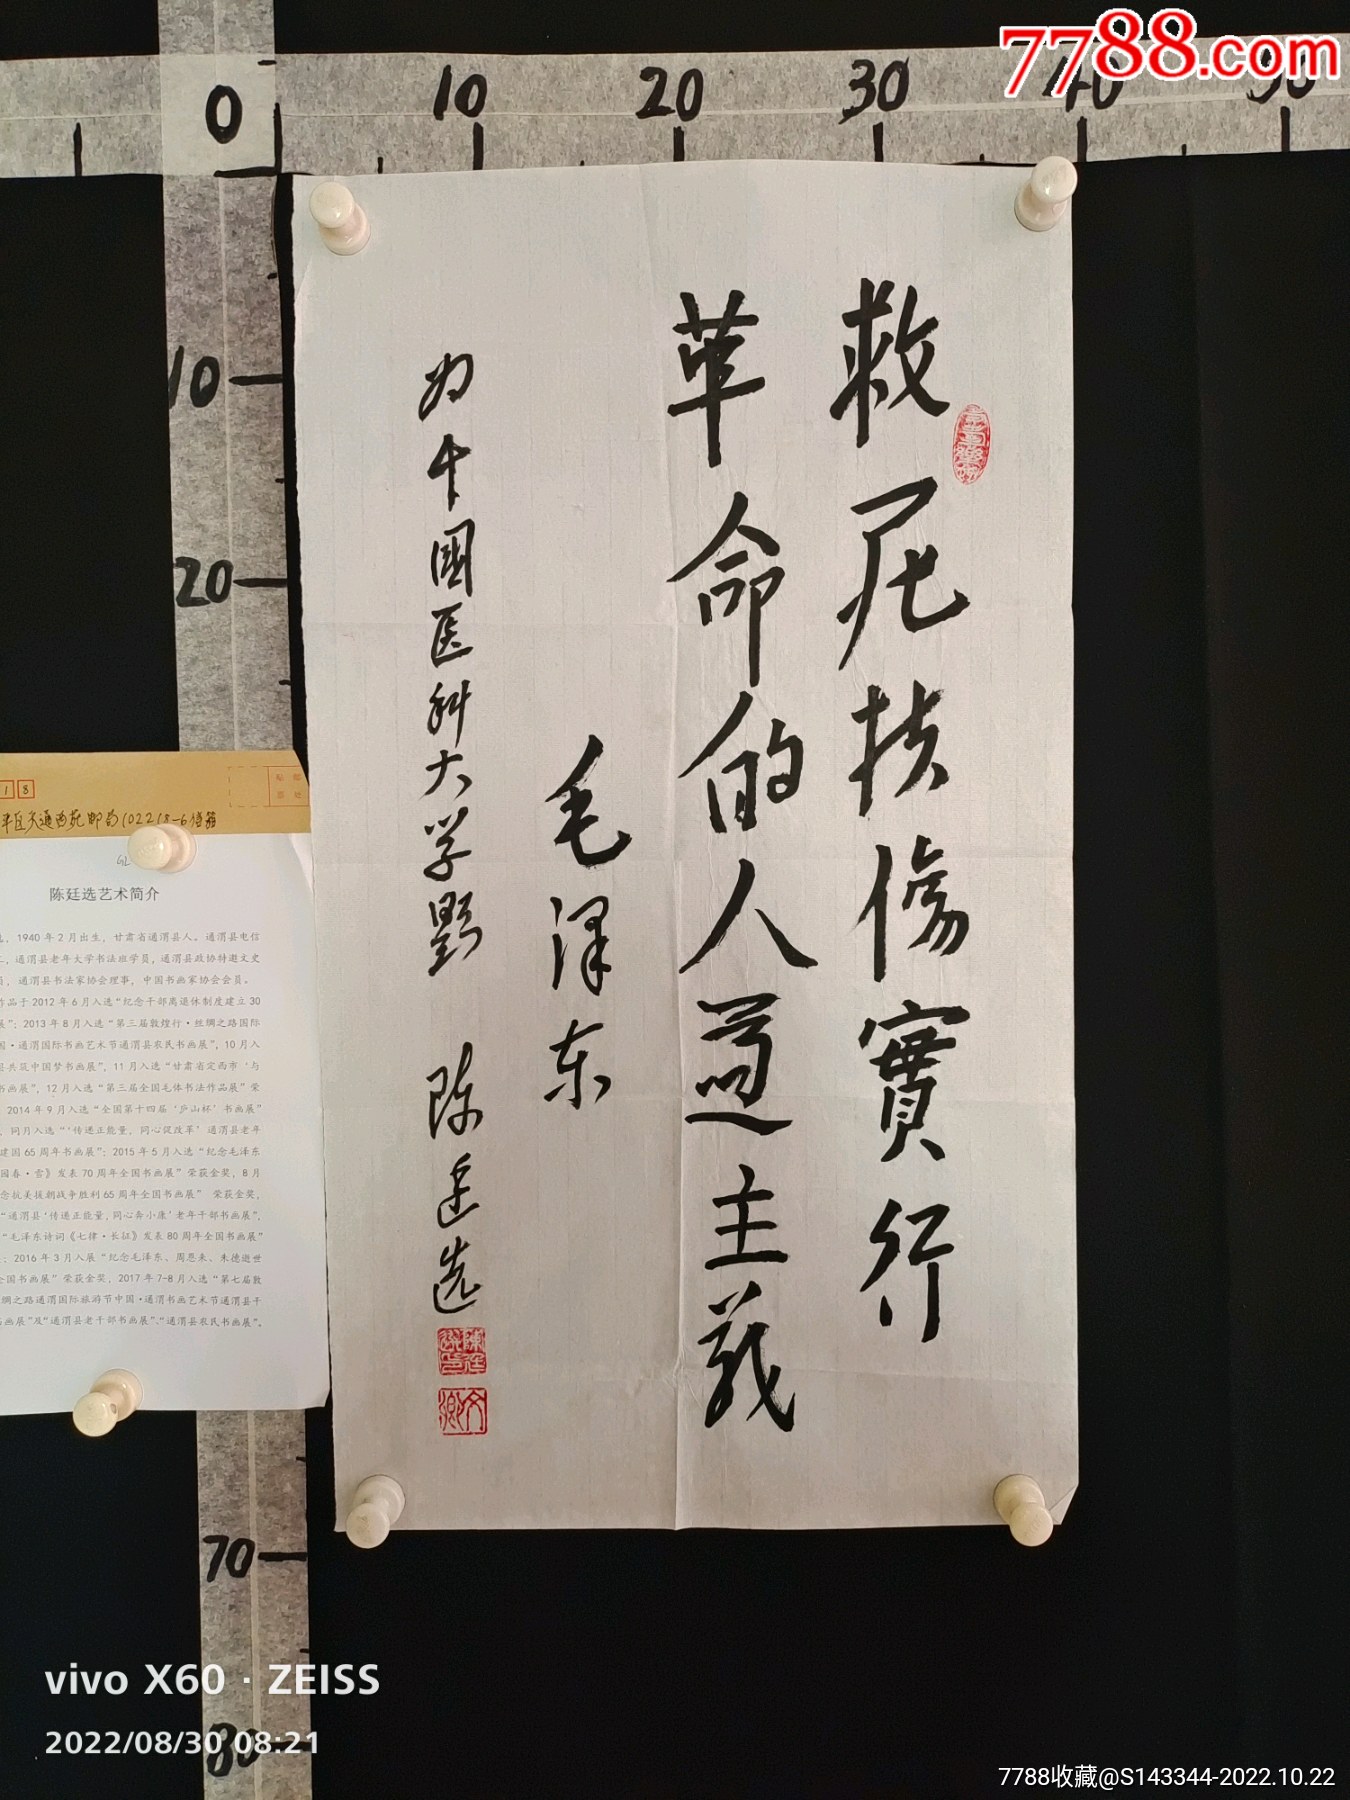 7788.com
0 10 20 30 40 50
10
20
70
80
救死扶傷實行
革命的人道主義
毛泽东
为中國医科大学题 陈廷选
陳廷選印
18
贴邮
票处
平区交通西苑邮局102218-6信箱
陈廷选艺术简介
，1940年2月出生，甘肃省通渭县人。通渭县电信
，通渭县老年大学书法班学员，通渭县政协特邀文史
，通渭县书法家协会理事，中国书画家协会会员。
作品于2012年6月入选“纪念干部离退休制度建立30
展”；2013年8月入选“第三届敦煌行·丝绸之路国际
国·通渭国际书画艺术节通渭县农民书画展”，10月入
县共筑中国梦书画展”，11月入选“甘肃省定西市‘与
书画展”，12月入选“第三届全国毛体书法作品展”荣
，2014年9月入选“全国第十四届‘庐山杯’书画展”
，同月入选“‘传递正能量，同心促改革’通渭县老年
建国65周年书画展”；2015年5月入选“纪念毛泽东
园春·雪》发表70周年全国书画展”荣获金奖，8月
念抗美援朝战争胜利65周年全国书画展” 荣获金奖，
“通渭县‘传递正能量，同心奔小康’老年干部书画展”，
“毛泽东诗词《七律·长征》发表80周年全国书画展”
；2016年3月入展“纪念毛泽东、周恩来、朱德逝世
全国书画展”荣获金奖，2017年7-8月入选“第七届敦
绸之路通渭国际旅游节中国·通渭书画艺术节通渭县干
书画展”及“通渭县老干部书画展”、“通渭县农民书画展”。
vivo X60 · ZEISS
2022/08/30 08:21
7788收藏@S143344-2022.10.22